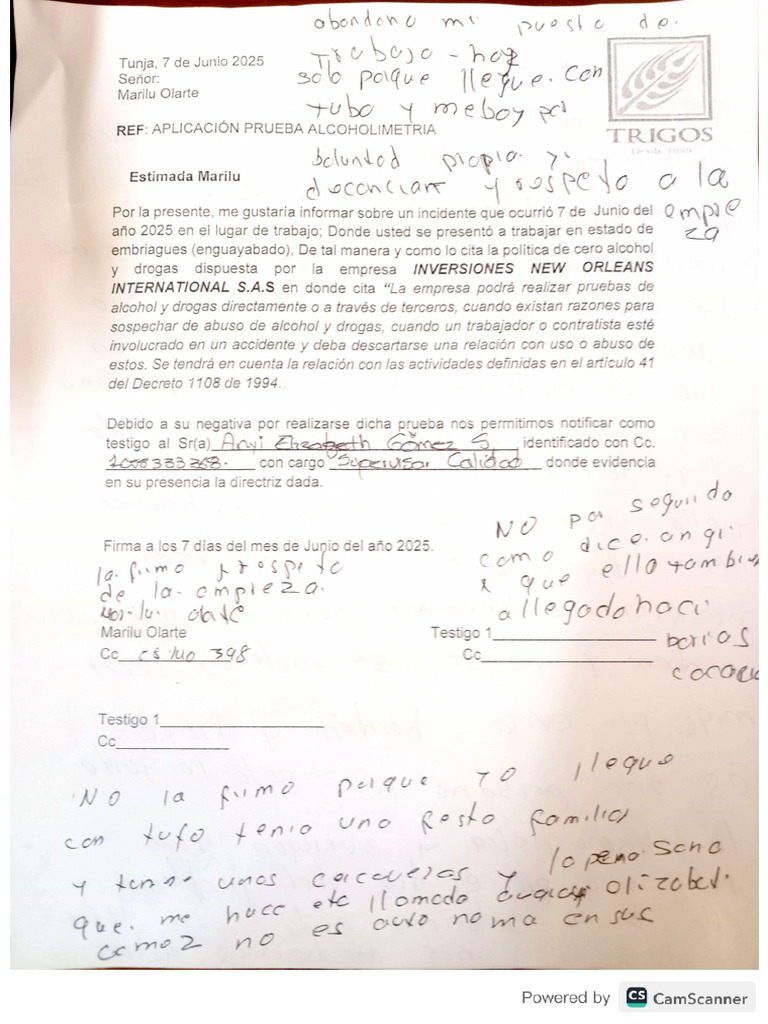 abandono mi puesto de.
Trabajo - hoy
solo porque llegue. con
tubo y meboy por
boluntad propia. y.
desconciar y respeto a la
empre
za
Tunja, 7 de Junio 2025
Señor:
Marilu Olarte
TRIGOS
Desde 1989
REF: APLICACIÓN PRUEBA ALCOHOLIMETRIA
Estimada Marilu
Por la presente, me gustaría informar sobre un incidente que ocurrió 7 de Junio del
año 2025 en el lugar de trabajo; Donde usted se presentó a trabajar en estado de
embriagues (enguayabado), De tal manera y como lo cita la política de cero alcohol
y drogas dispuesta por la empresa INVERSIONES NEW ORLEANS
INTERNATIONAL S.A.S en donde cita “La empresa podrá realizar pruebas de
alcohol y drogas directamente o a través de terceros, cuando existan razones para
sospechar de abuso de alcohol y drogas, cuando un trabajador o contratista esté
involucrado en un accidente y deba descartarse una relación con uso o abuso de
estos. Se tendrá en cuenta la relación con las actividades definidas en el artículo 41
del Decreto 1108 de 1994.
Debido a su negativa por realizarse dicha prueba nos permitimos notificar como
testigo al Sr(a) Anyi Elizabeth Gómez S. identificado con Cc.
con cargo Supervisor Calidad donde evidencia
en su presencia la directriz dada.
Firma a los 7 días del mes de Junio del año 2025.
la. firmo y respeto
de la. empieza.
Mari lu. olarte
Marilu Olarte
Cc 398
NO por segundo
como dice. angi.
que ello tambie
a llegado haci
borios
Testigo 1
Cc
Testigo 1
Cc
NO la firmo porque yo llegue
con tufo tenia uno festo familia
y tense unos cocoveros y lo peno. Sono
que. me hace este llamado olizabet.
Gemoz no es auto noma en sus
Powered by CS CamScanner